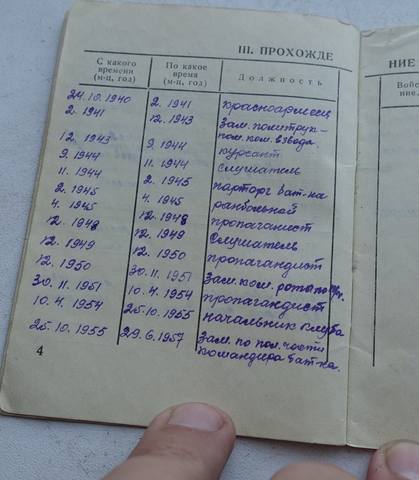 III. ПРОХОЖДЕ
С какого времени (м-ц, год) По какое время (м-ц, год) Должность
24.10.1940 2.1941 красноармеец
2.1941 12.1943 Зам. политрук-
пом. ком. взвода
12.1943 9.1944 курсант
9.1944 11.1944 слушатель
11.1944 2.1945 парторг бат-на
2.1945 4.1945 ранбольной
4.1945 12.1948 пропагандист
12.1948 12.1949 Слушатель
12.1949 12.1950 пропагандист
12.1950 30.11.1951 Зам. ком. роты по
30.11.1951 10.4.1954 пропагандист
10.4.1954 25.10.1955 начальник клуба
25.10.1955 29.6.1957 Зам. по пол. части
командира бат-на.
4
НИЕ
Войс
ние,